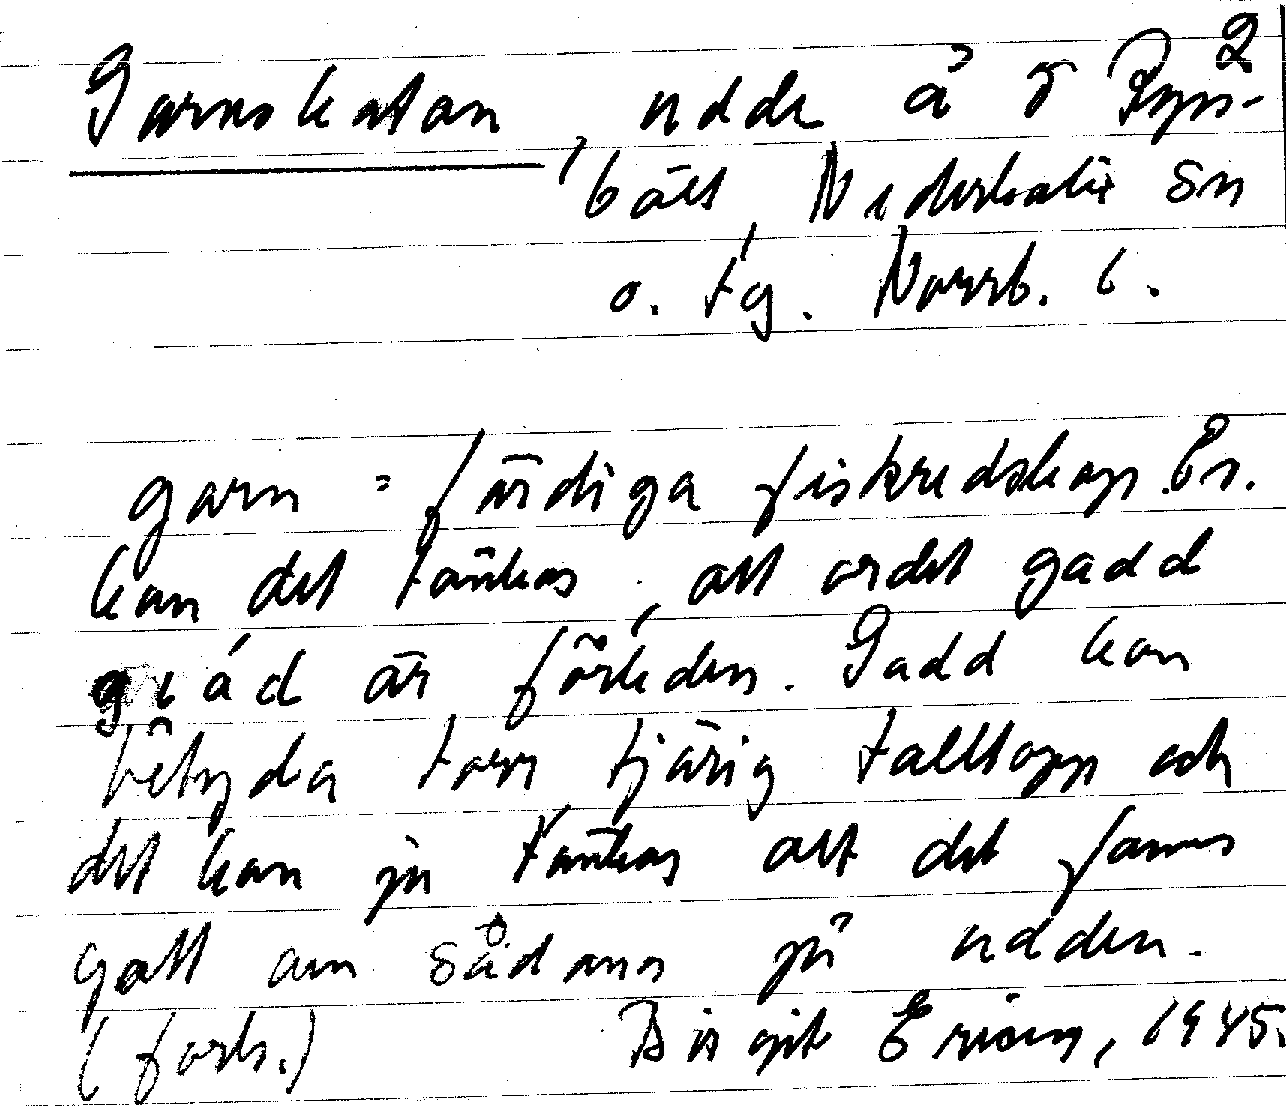 2
Garnskatan, udde å ö Ryss-
bält, Nederkalix sn
o. tg. Norrb. l.
garn = färdiga fiskredskap. Ev.
kan det tänkas, att ordet gadd
är förleden. Gadd kan
betyda torr tjärig talltopp och
det kan ju tänkas att det fanns
gott om sådana på udden.
(forts.) Birgit Ericing, 1945.